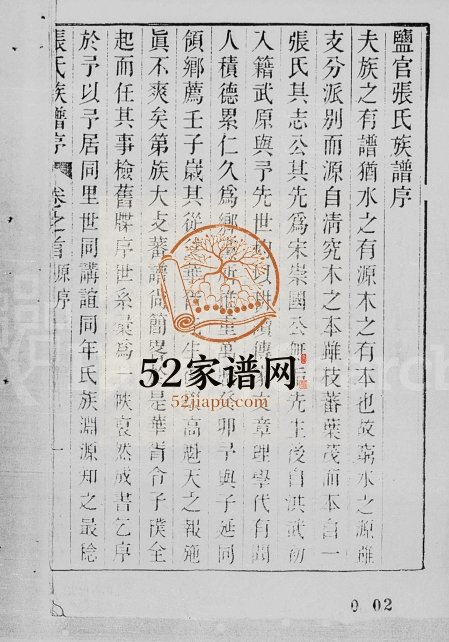 鹽官張氏族譜序
夫族之有譜猶水之有源木之有本也故窮水之源雖
支分派別而源自清究木之本雖枝蕃葉茂而本自一
張氏其志公其先爲宋崇國公無垢先生後自洪武初
入籍武原與予先世 以 傳 章理學代有聞
人積德累仁久爲鄉 所推重萬 癸卯予與子延同
領鄉薦壬子嵗其從 華 生 高魁天之報施
眞不爽矣第族大支蕃譜尚簡畧 是華育令子僕全
起而任其事檢舊牒序世系彙爲一帙裒然成書乞序
於予以予居同里世同講誼同年氏族淵源知之最稔
張氏族譜序 卷之首 源序 一
52家谱网
52jiapu.com
0 02